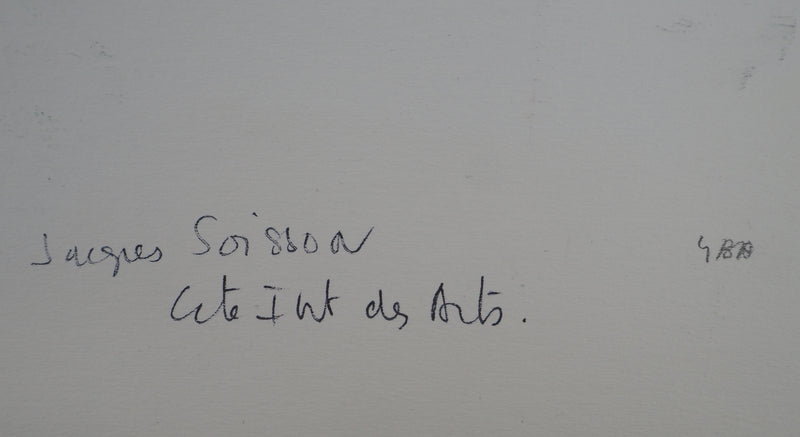 Jacques Soisson
Cité Int des Arts.